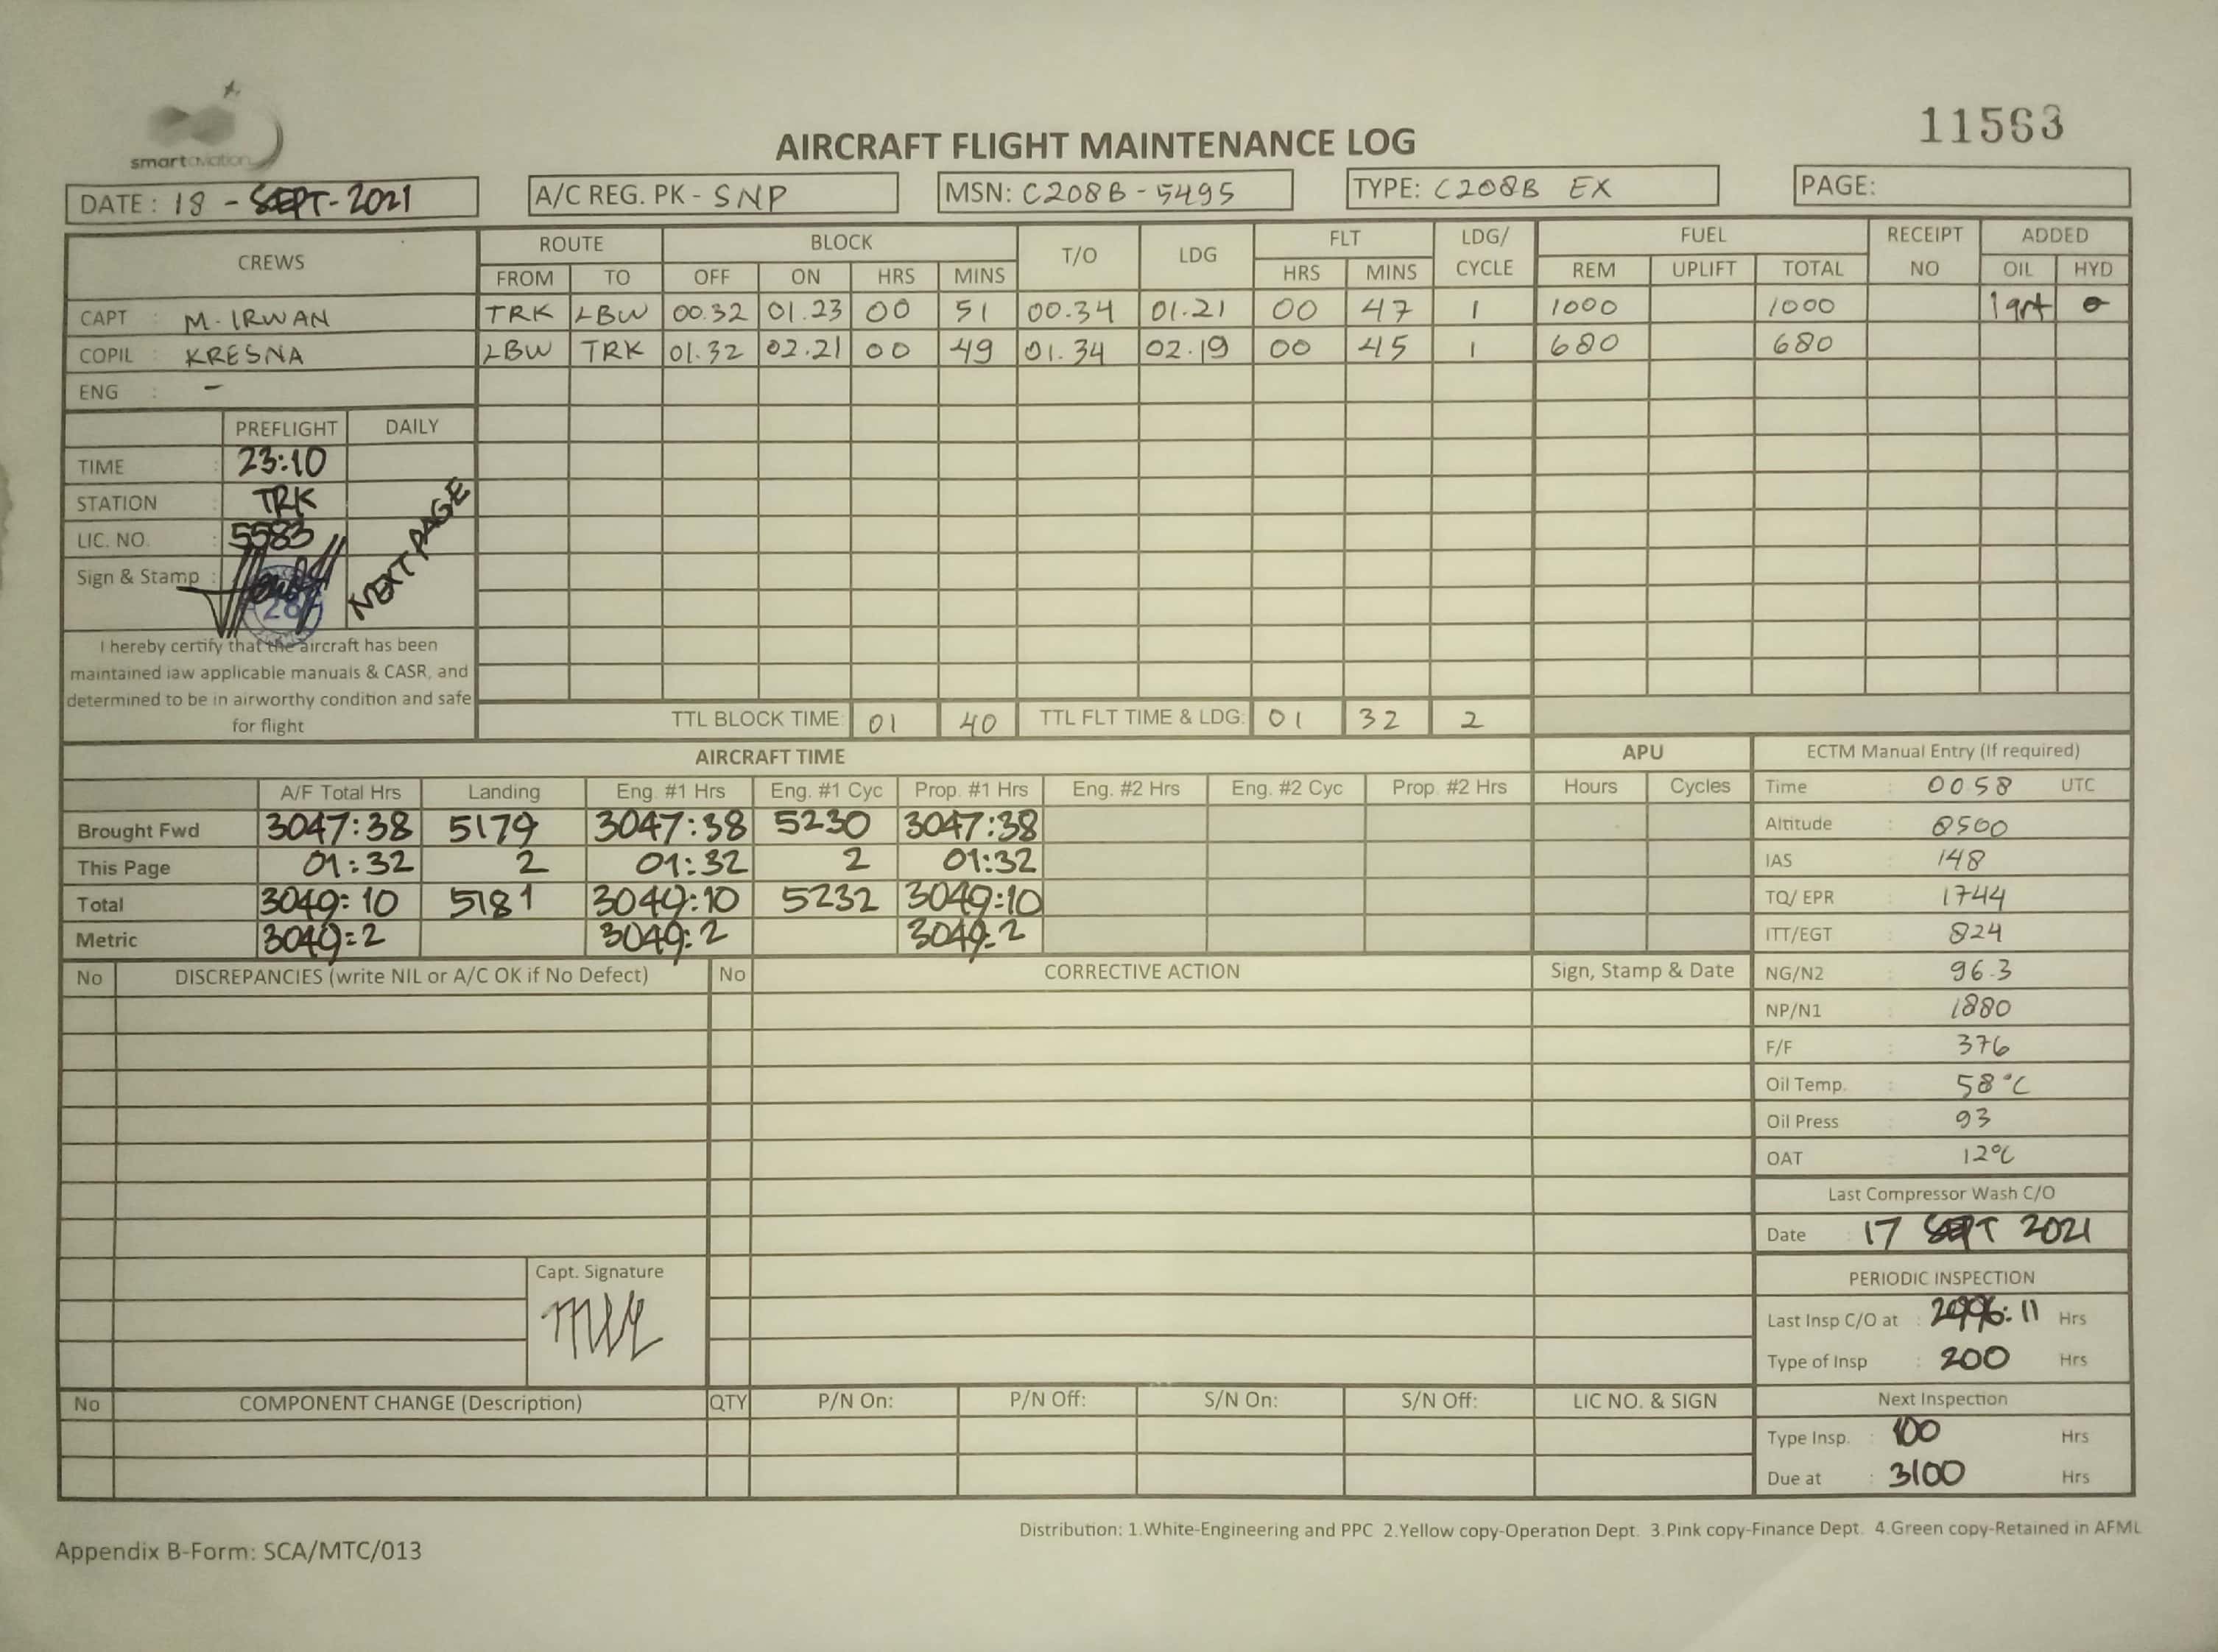 smartaviation
11563
AIRCRAFT FLIGHT MAINTENANCE LOG
DATE : 18 - SEPT-2021 A/C REG. PK - SNP MSN: C208B - 5495 TYPE: C208B EX PAGE:
CREWS ROUTE BLOCK T/O LDG FLT LDG/ CYCLE FUEL RECEIPT NO ADDED
FROM TO OFF ON HRS MINS HRS MINS REM UPLIFT TOTAL OIL HYD
CAPT : M. IRWAN TRK LBW 00.32 01.23 00 51 00.34 01.21 00 47 1 1000 1000 1qrt 0
COPIL : KRESNA LBW TRK 01.32 02.21 00 49 01.34 02.19 00 45 1 680 680
ENG : -
PREFLIGHT DAILY
TIME : 23:10
STATION : TRK
LIC. NO. : 5583
Sign & Stamp :
NEXT PAGE
I hereby certify that the aircraft has been
maintained iaw applicable manuals & CASR, and
determined to be in airworthy condition and safe
for flight
TTL BLOCK TIME: 01 40 TTL FLT TIME & LDG: 01 32 2
AIRCRAFT TIME APU
A/F Total Hrs Landing Eng. #1 Hrs Eng. #1 Cyc Prop. #1 Hrs Eng. #2 Hrs Eng. #2 Cyc Prop. #2 Hrs Hours Cycles
Brought Fwd 3047:38 5179 3047:38 5230 3047:38
This Page 01:32 2 01:32 2 01:32
Total 3049:10 5181 3049:10 5232 3049:10
Metric 3049:2 3049:2 3049:2
ECTM Manual Entry (If required)
Time : 0058 UTC
Altitude : 8500
IAS : 148
TQ/ EPR : 1744
ITT/EGT : 824
NG/N2 : 96.3
NP/N1 : 1880
F/F : 376
Oil Temp. : 58°C
Oil Press : 93
OAT : 12°C
Last Compressor Wash C/O
Date : 17 SEPT 2021
PERIODIC INSPECTION
Last Insp C/O at : 2996:11 Hrs
Type of Insp : 200 Hrs
Next Inspection
Type Insp. : 100 Hrs
Due at : 3100 Hrs
No DISCREPANCIES (write NIL or A/C OK if No Defect) No CORRECTIVE ACTION Sign, Stamp & Date
Capt. Signature
No COMPONENT CHANGE (Description) QTY P/N On: P/N Off: S/N On: S/N Off: LIC NO. & SIGN
Distribution: 1.White-Engineering and PPC 2.Yellow copy-Operation Dept. 3.Pink copy-Finance Dept. 4.Green copy-Retained in AFML
Appendix B-Form: SCA/MTC/013